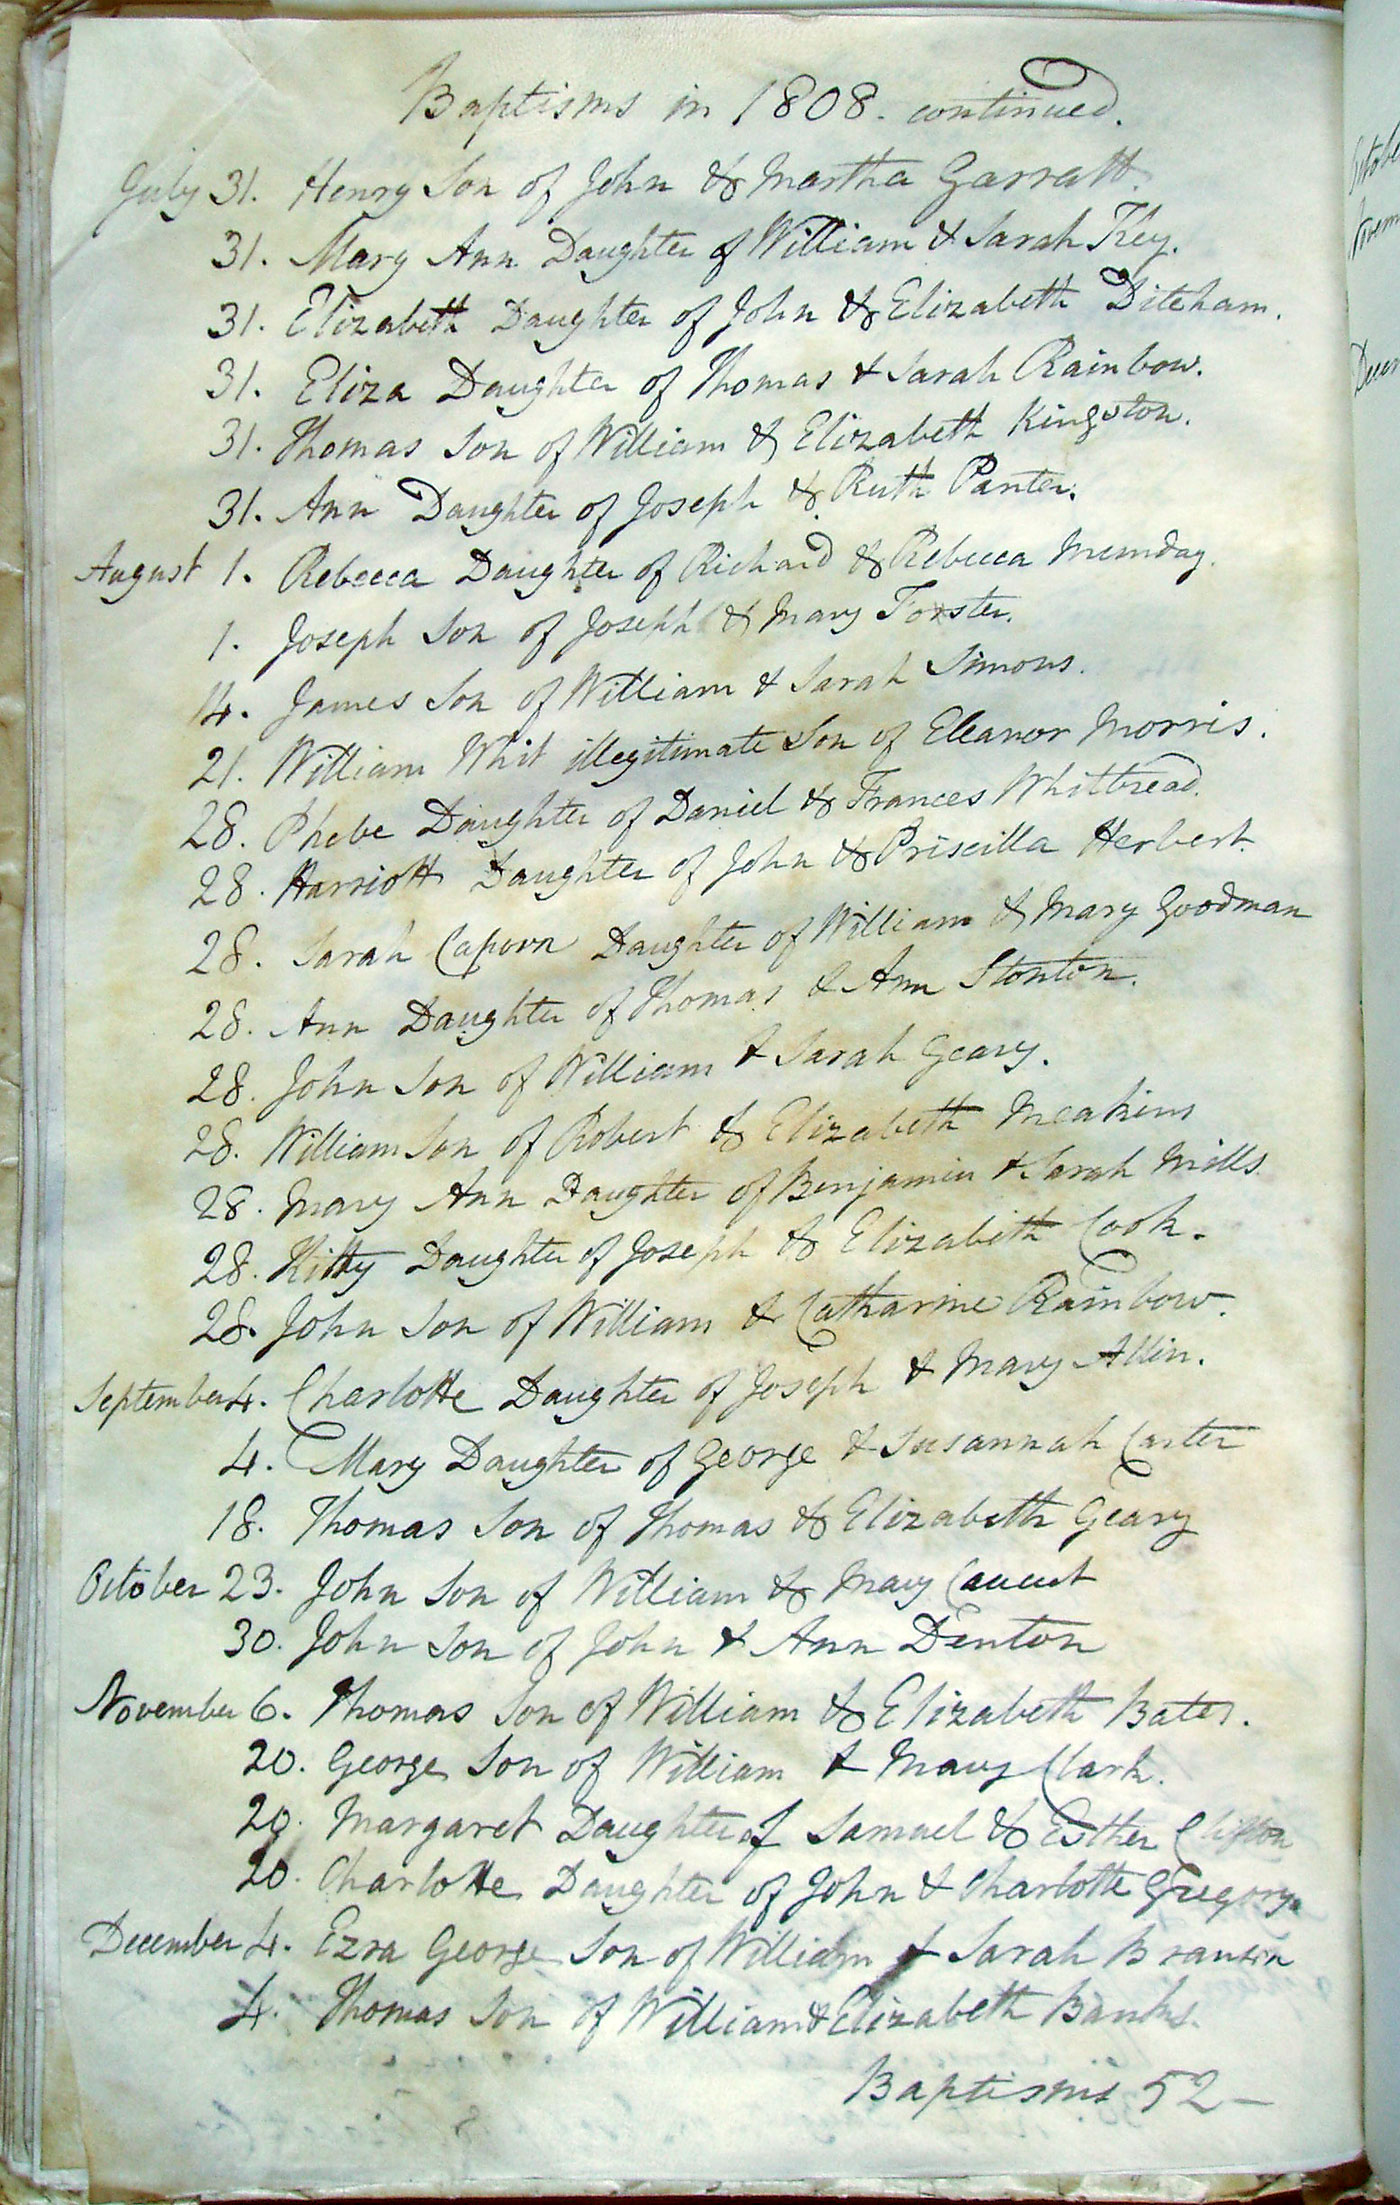 Baptisms in 1808. continued.
July 31. Henry Son of John & Martha Garratt.
31. Mary Ann Daughter of William & Sarah Key.
31. Elizabeth Daughter of John & Elizabeth Diteham.
31. Eliza Daughter of Thomas & Sarah Rainbow.
31. Thomas Son of William & Elizabeth Kingston.
31. Ann Daughter of Joseph & Ruth Panter.
August 1. Rebecca Daughter of Richard & Rebecca Munday.
1. Joseph Son of Joseph & Mary Forster.
14. James Son of William & Sarah Simons.
21. William Whit illegitimate Son of Eleanor Morris.
28. Phebe Daughter of Daniel & Frances Whitbread.
28. Harriott Daughter of John & Priscilla Herbert.
28. Sarah Caporn Daughter of William & Mary Goodman
28. Ann Daughter of Thomas & Ann Stonton.
28. John Son of William & Sarah Geary.
28. William Son of Robert & Elizabeth Meakins
28. Mary Ann Daughter of Benjamin & Sarah Mills.
28. Kitty Daughter of Joseph & Elizabeth Cook.
28. John Son of William & Catharine Rainbow.
September 4. Charlotte Daughter of Joseph & Mary Allin.
4. Mary Daughter of George & Susannah Carter
18. Thomas Son of Thomas & Elizabeth Geary
October 23. John Son of William & Mary
30. John Son of John & Ann Denton
November 6. Thomas Son of William & Elizabeth Bates.
20. George Son of William & Mary Clark.
20. Margaret Daughter of Samuel & Esther Clifton
20. Charlotte Daughter of John & Charlotte Gregory
December 4. Ezra George Son of William & Sarah
4. Thomas Son of William & Elizabeth Banks.
Baptisms 52